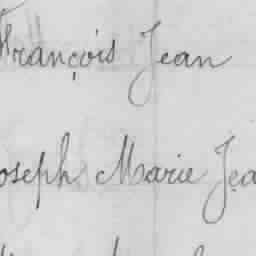 François Jean
oseph Marie Jea